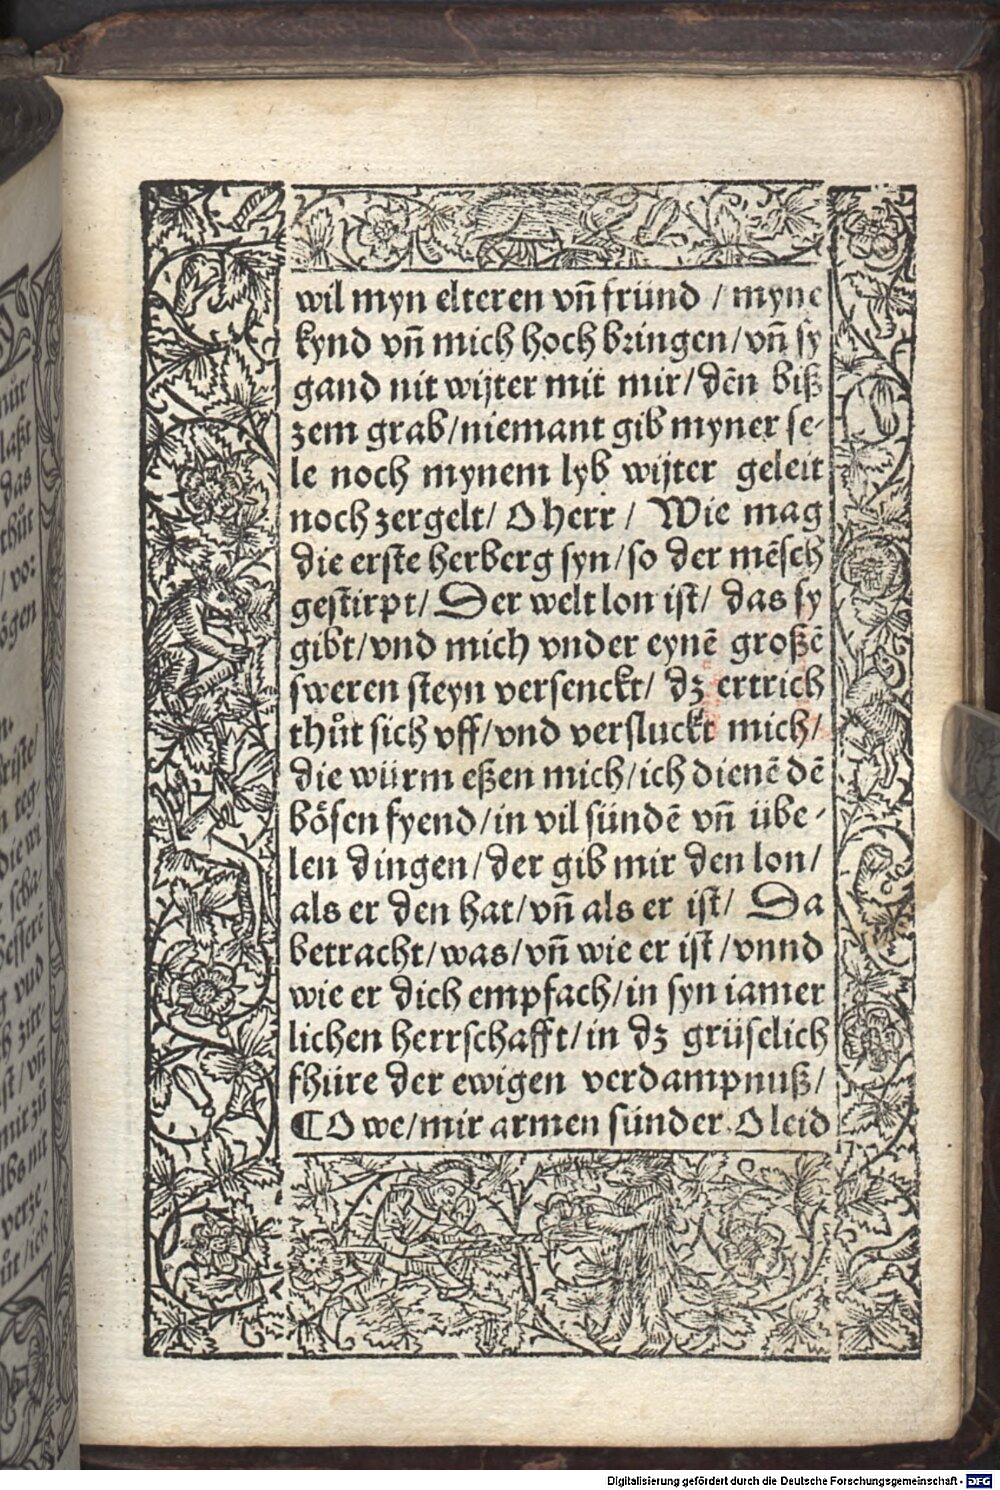 wil myn elteren vñ fründ / myne
kynd vñ mich hoch bringen / vñ sy
gand nit wijter mit mir / deñ biß
zem grab / niemant gib myner se-
le noch mynem lyb wijter geleit
noch zergelt / O herr / Wie mag
die erste herberg syn / so der mēsch
gestirpt / Der welt lon ist / das sy
gibt / vnd mich vnder eynē großē
sweren steyn versenckt / dz ertrich
thůt sich vff / vnd versluckt mich /
die würm eßen mich / ich dienē dē
bösen fyend / in vil sündē vñ übe-
len dingen / der gib mir den lon /
als er den hat / vñ als er ist / Da
betracht / was / vñ wie er ist / vnnd
wie er dich empfach / in syn iamer
lichen herrschafft / in dz grüselich
fhüre der ewigen verdampnuß /
¶ O we / mir armen sünder. O leid
nůt
laßt
das
thůt
/ vor
ögen
teg-
scha/
Bessere
vnd
vñ
mir zů
lbs mit
verze-
ůt / ich
Digitalisierung gefördert durch die Deutsche Forschungsgemeinschaft - DFG